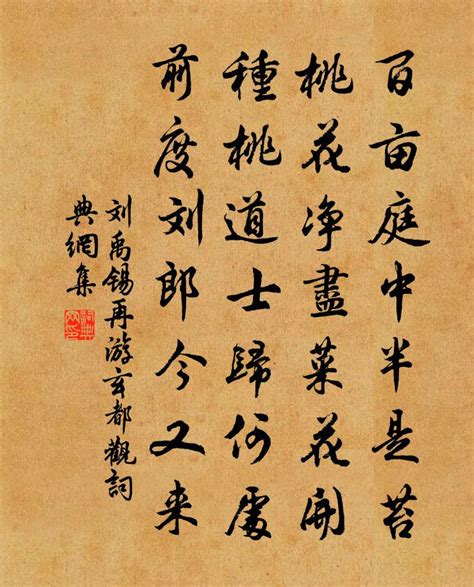 百亩庭中半是苔
桃花净盡菜花開
種桃道士歸何處
前度刘郎今又来
刘禹锡再游玄都觀詞
典網集